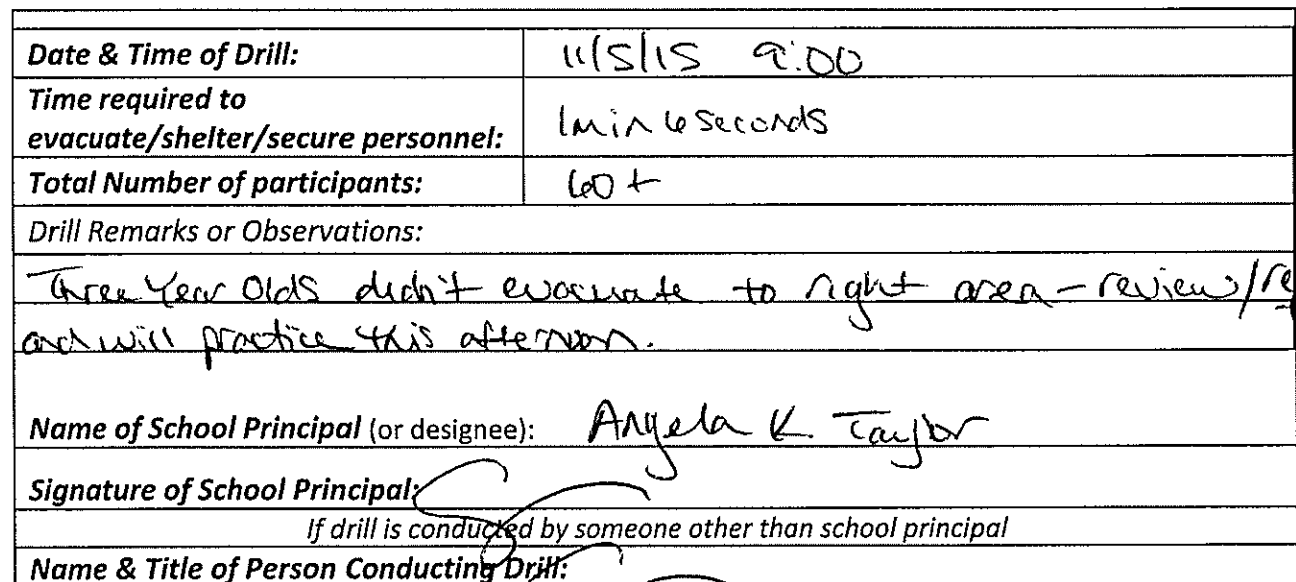 Date & Time of Drill: 11/5/15 9:00
Time required to
evacuate/shelter/secure personnel: 1min 6 seconds
Total Number of participants: 60+
Drill Remarks or Observations:
Three Year Olds didn't evacuate to right area - review/re
and will practice this afternoon.
Name of School Principal (or designee): Angela K. Taylor
Signature of School Principal:
If drill is conducted by someone other than school principal
Name & Title of Person Conducting Drill: